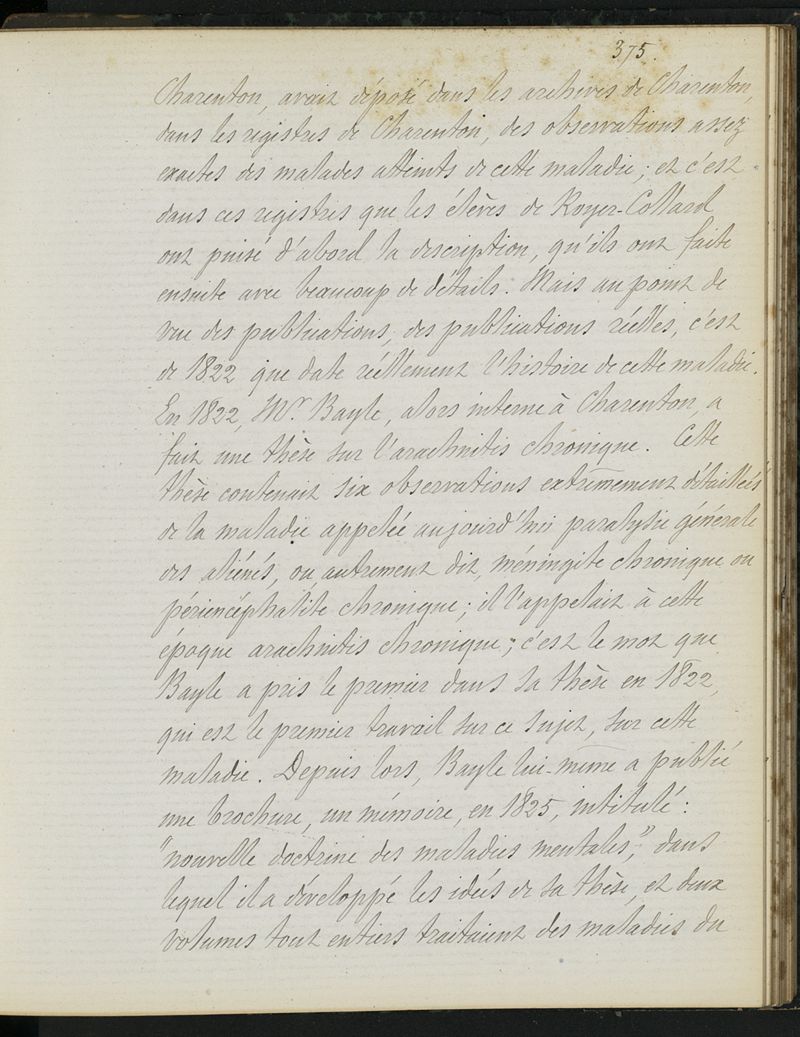 375.
Charenton, avait déposé dans les archives de Charenton,
dans les registres de Charenton, des observations assez
exactes des malades atteints de cette maladie; et c'est
dans ces registres que les élèves de Royer-Collard
ont puisé d'abord la description, qu'ils ont faite
ensuite avec beaucoup de détails. Mais au point de
vue des publications, des publications réelles, c'est
de 1822 que date réellement l'histoire de cette maladie.
En 1822, Mr. Bayle, alors interne à Charenton, a
fait une thèse sur l'arachnitis chronique. Cette
thèse contenait six observations extrêmement détaillées
de la maladie appelée aujourd'hui paralysie générale
des aliénés, ou, autrement dit, méningite chronique ou
périencéphalite chronique; il l'appelait à cette
époque arachnitis chronique; c'est le mot que
Bayle a pris le premier dans sa thèse en 1822,
qui est le premier travail sur ce sujet, sur cette
maladie. Depuis lors, Bayle lui-même a publié
une brochure, un mémoire, en 1825, intitulé:
"nouvelle doctrine des maladies mentales," dans
lequel il a développé les idées de sa thèse, et deux
volumes tout entiers traitaient des maladies du